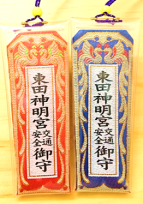 東田神明宮
交通安全御守
東田神明宮
交通安全御守